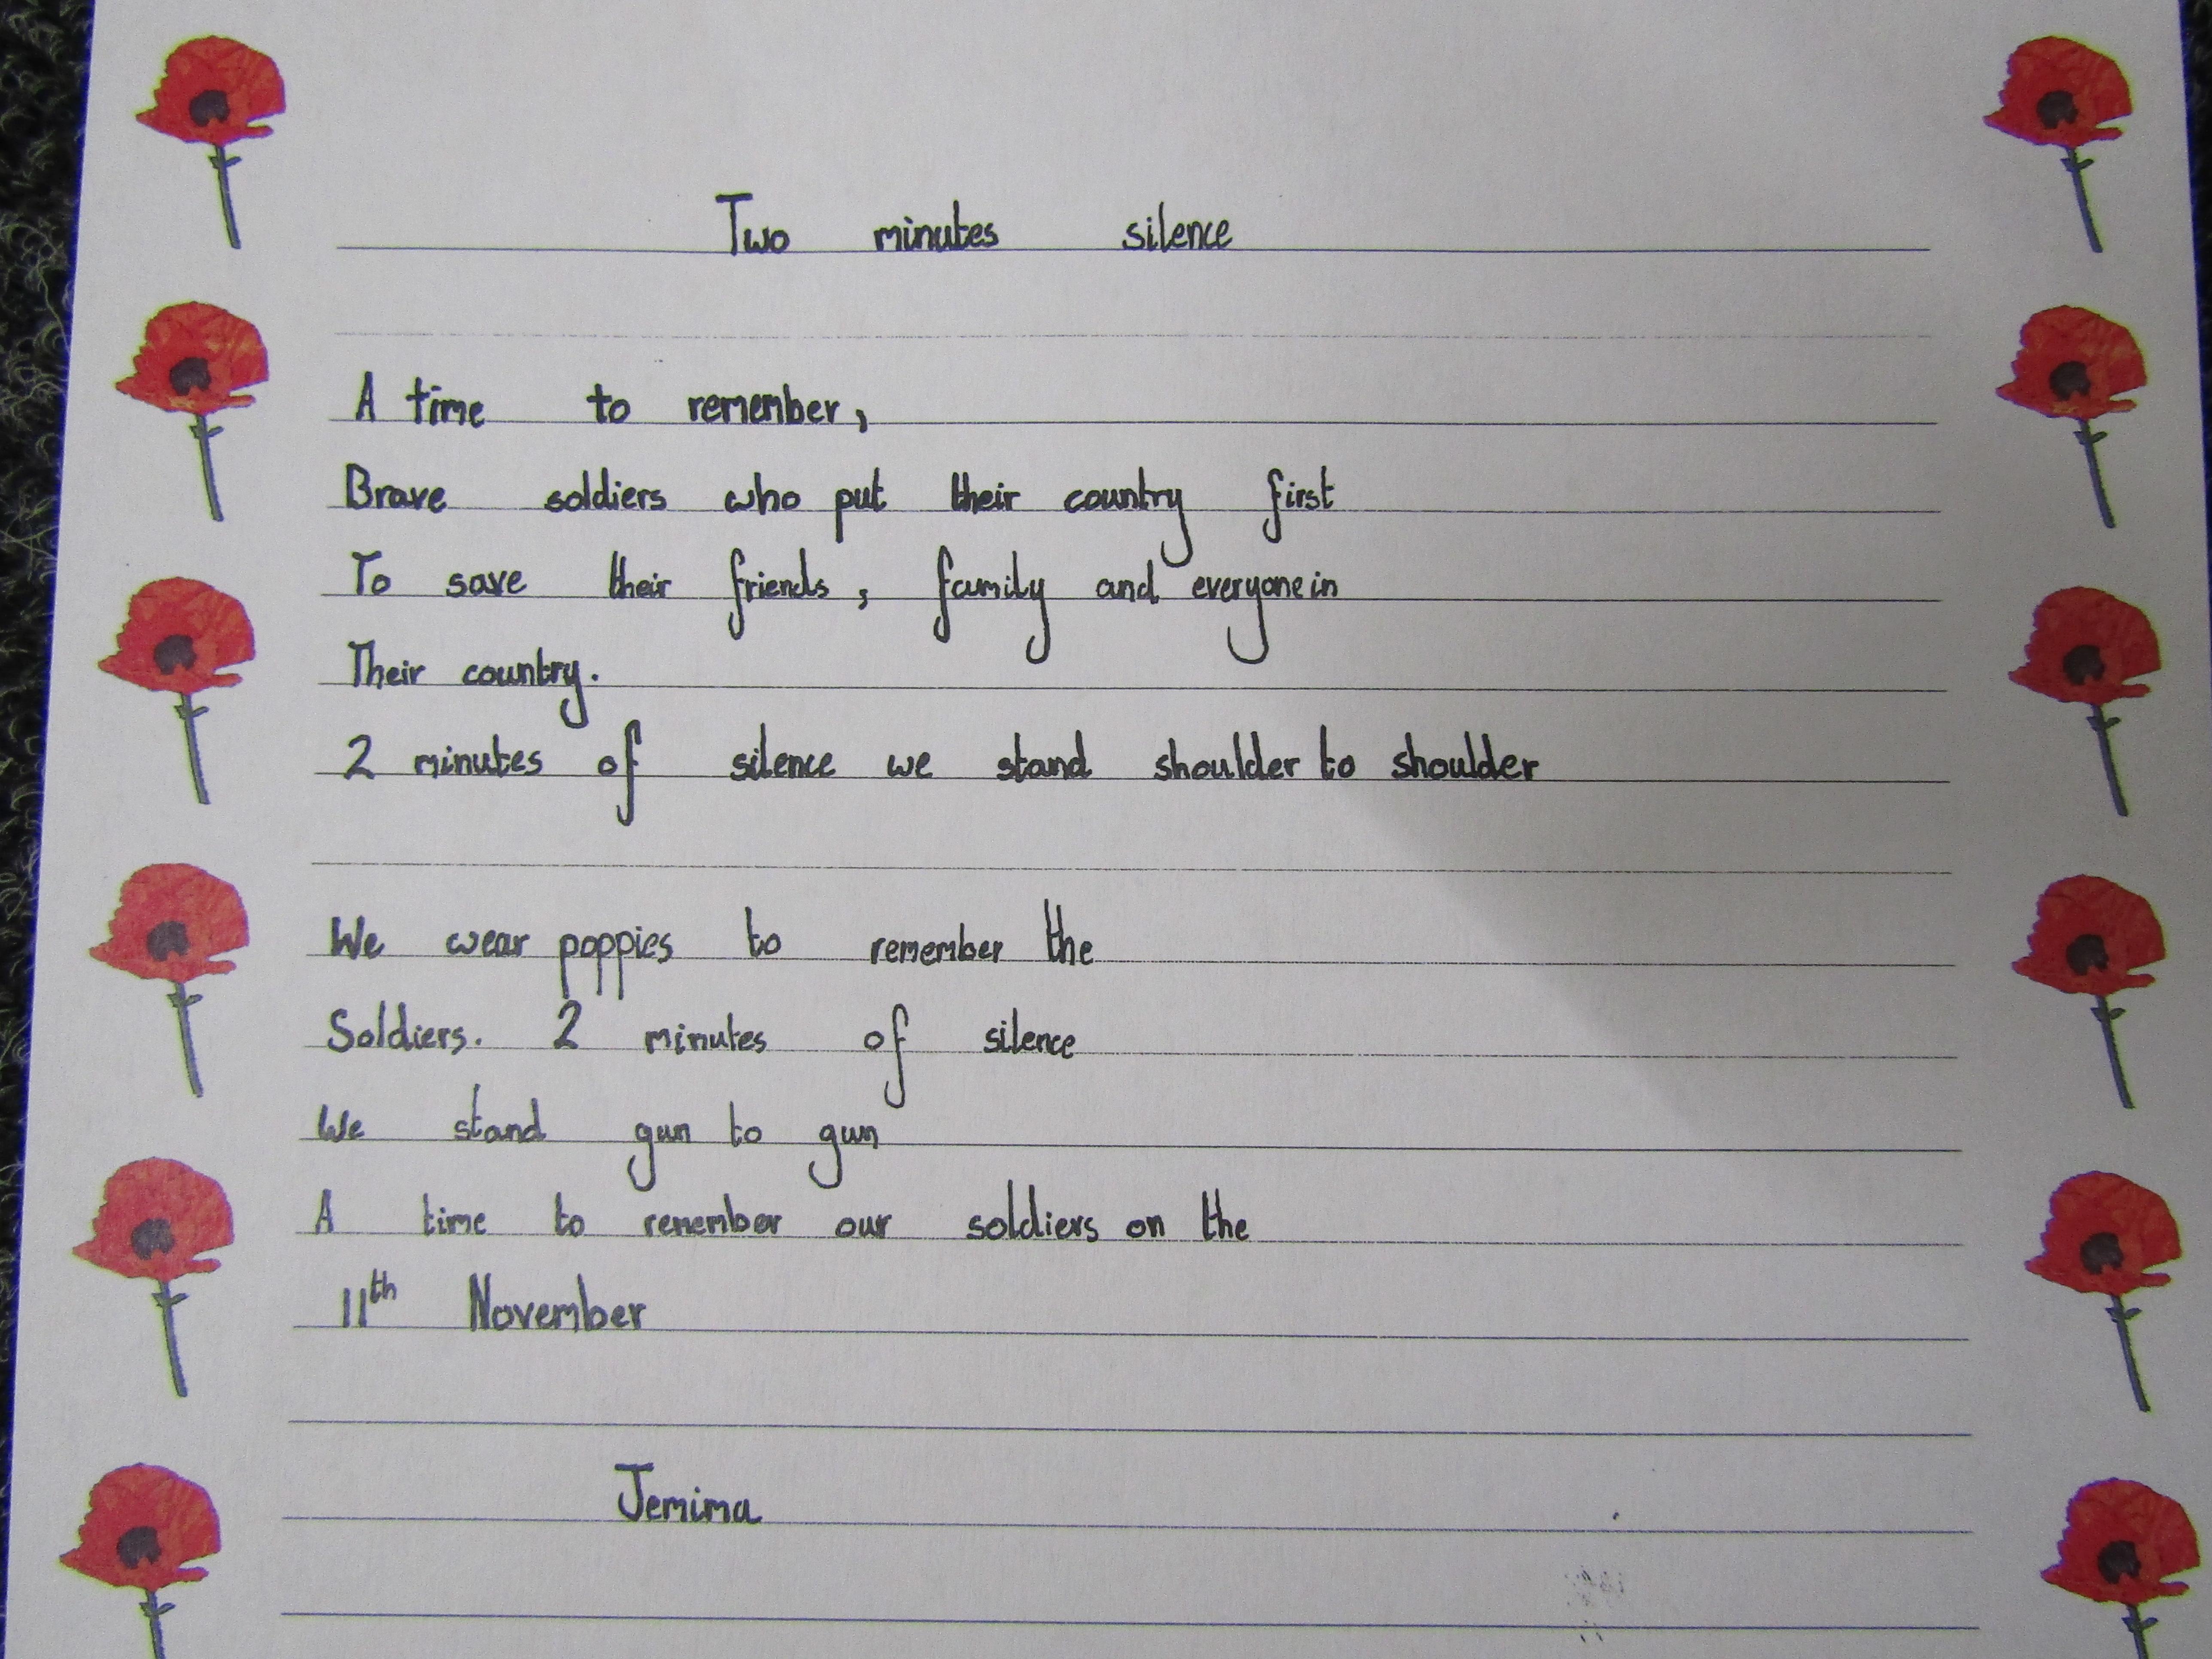 Two minutes silence
A time to remember,
Brave soldiers who put their country first
To save their friends, family and everyone in
Their country.
2 minutes of silence we stand shoulder to shoulder
We wear poppies to remember the
Soldiers. 2 minutes of silence
We stand gun to gun
A time to remember our soldiers on the
11th November
Jemima